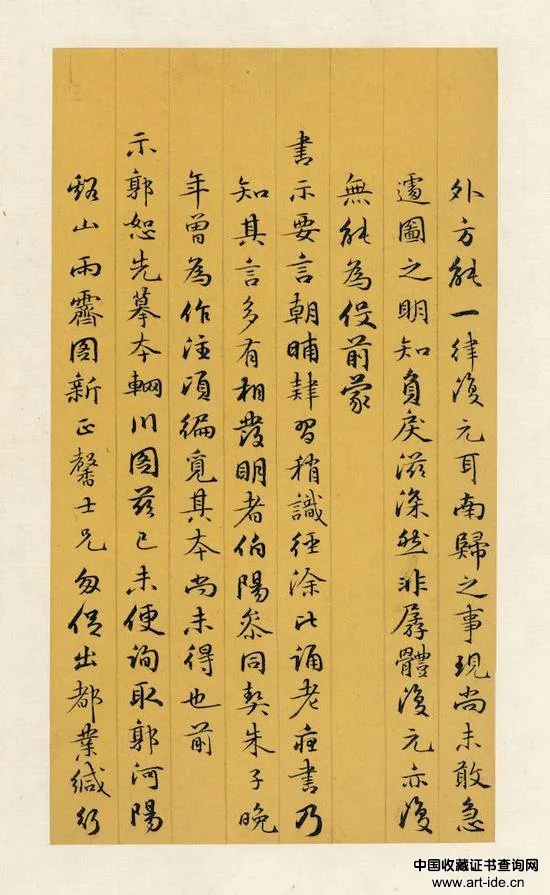 外方能一律復元耳南歸之事現尚未敢急
遽圖之明知負戾滋深然非孱體復元亦復
無能為役前蒙
書示要言朝晡肄習稍識徑涂比誦老莊書乃
知其言多有相發明者伯陽參同契朱子晚
年曾為作注項編覓其本尚未得也前
示郭恕先摹本輞川圖茲已未便詢取郭河陽
谿山雨霽圖新正馨士兄匆促出都業緘行
中国收藏证书查询网
www.art-ide.cn